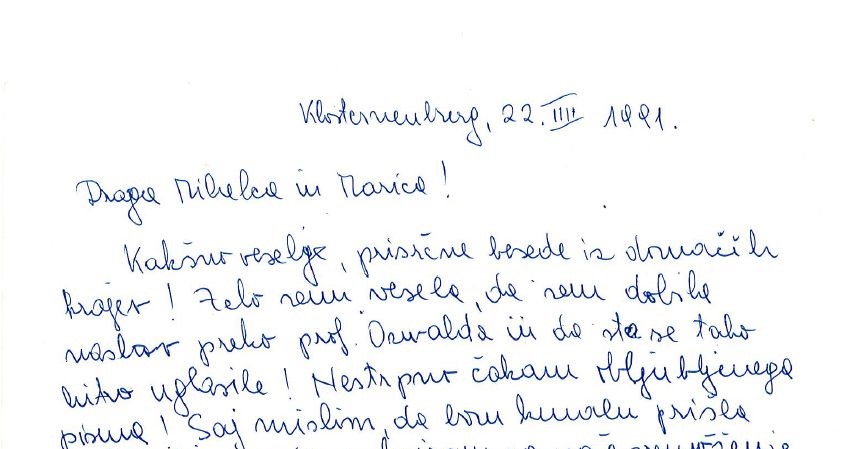 Klosterneuburg, 22. IIII 1991.
Draga Mihelca in Marica!
Kakšno veselje, prisrčne besede iz domačih
krajev! Zelo sem vesela, da sem dobila
naslov preko prof. Oswalda in da sta se tako
hitro uglasile! Nestrpno čakam obljubljenega
pisma! Saj mislim, da bom kmalu prišla